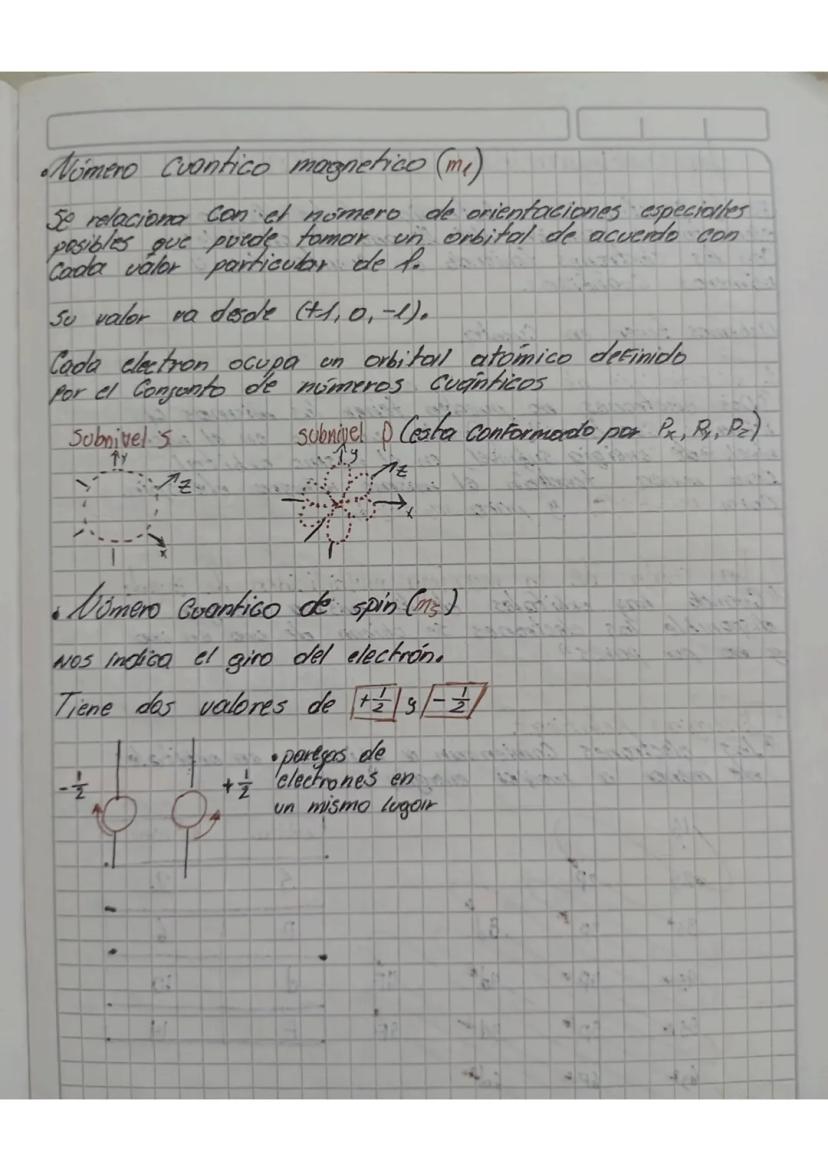 • Número Cuantico magnetico (mℓ)
Se relaciona con el número de orientaciones especiales
posibles que puede tomar un orbital de acuerdo con
cada valor particular de ℓ.
Su valor va desde (+1, 0, -1).
Cada electron ocupa un orbital atómico definido
por el Conjunto de números cuánticos
Subnivel s
subnivel p (esta conformado por Px, Py, Pz)
y
z
x
y
z
x
• Número Cuantico de spin (ms)
Nos indica el giro del electrón.
Tiene dos valores de +1/2 y -1/2
-1/2
+1/2
• parejas de
electrones en
un mismo lugar